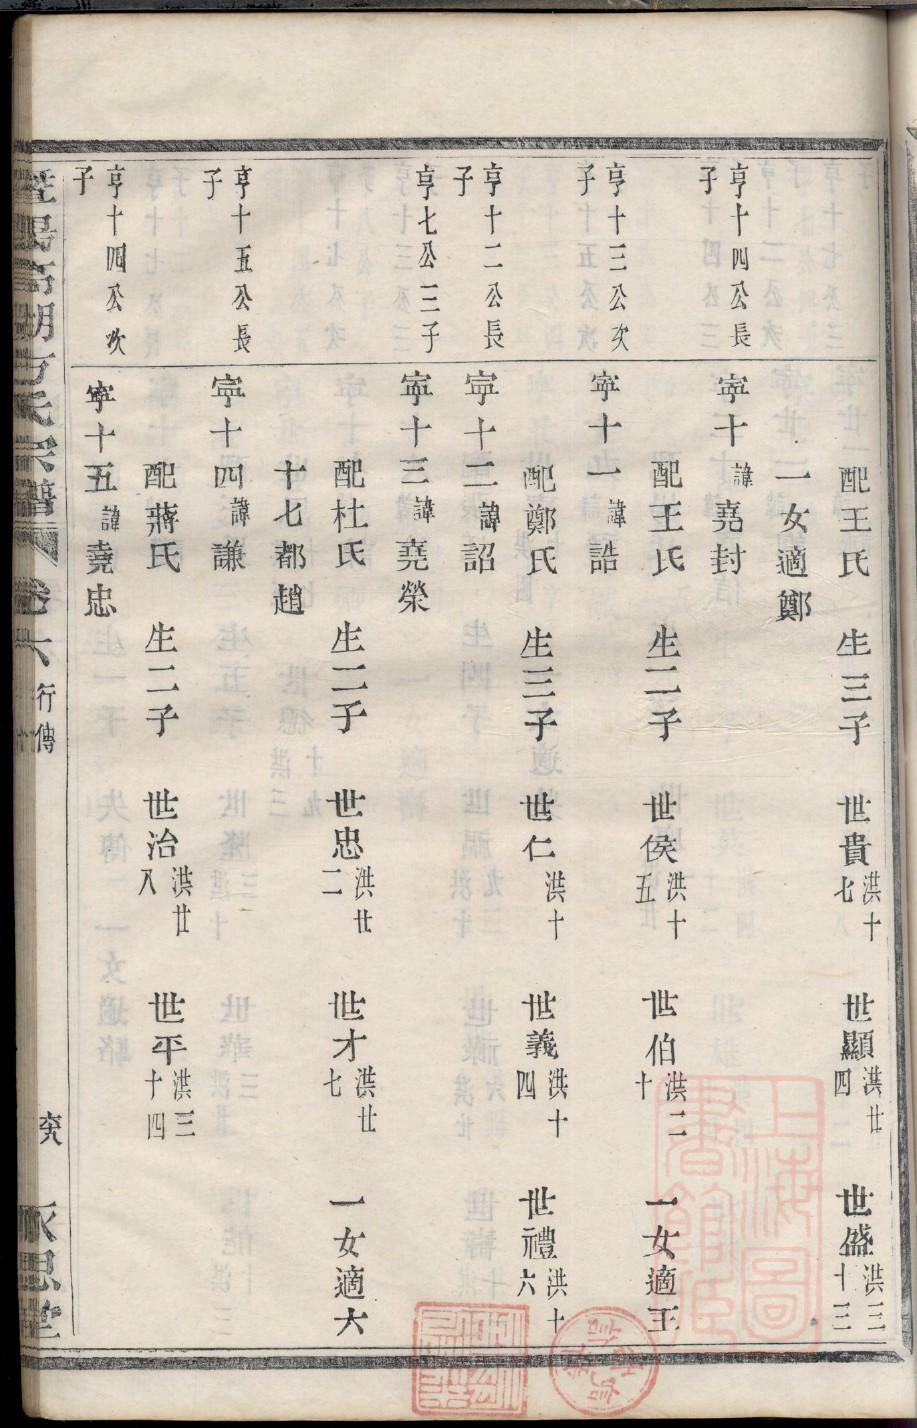 配王氏 生三子 世貴洪十七 世顯洪廿四 世盛洪三十三
一女適鄭
亨十四公長子
寕十諱堯封
配王氏 生二子 世侯洪十五 世伯洪二十 一女適王
亨十三公次子
寕十一諱誥
配鄭氏 生三子 世仁洪十 世義洪十四 世禮洪十六
亨十二公長子
寕十二諱詔
亨七公三子
寕十三諱堯榮
配杜氏 生二子 世忠洪廿二 世才洪廿七 一女適六
十七都趙
亨十五公長子
寕十四諱謙
配蔣氏 生二子 世治洪廿八 世平洪三十四
亨十四公次子
寕十五諱堯忠
方氏宗譜 卷六 行傳